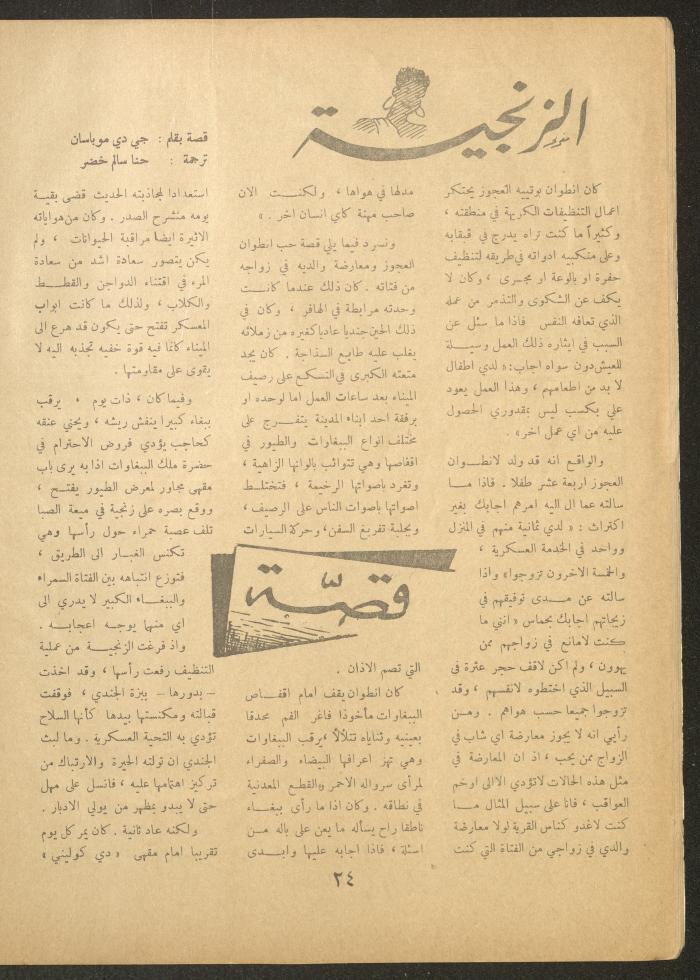 الزنجية
قصة بقلم : جي دي موباسان
ترجمة : حنا سالم خضر
كان انطوان بوتييه العجوز يحتكر
اعمال التنظيفات الكريهة في منطقته ،
وكثيراً ما كنت تراه يدرج في قبقابه
وعلى منكبيه ادواته في طريقه لتنظيف
حفرة او بالوعة او مجرى ، وكان لا
يكف عن الشكوى والتذمر من عمله
الذي تعافه النفس فاذا ما سئل عن
السبب في ايثاره ذلك العمل وسيلة
للعيش دون سواه اجاب: « لدي اطفال
لا بد من اطعامهم ، وهذا العمل يعود
علي بكسب ليس بمقدوري الحصول
عليه من اي عمل اخر» .
والواقع انه قد ولد لانطوان
العجوز اربعة عشر طفلا . فاذا ما
سالته عما ال اليه امرهم اجابك بغير
اكتراث : « لدي ثمانية منهم في المنزل
وواحد في الخدمة العسكرية ،
والخمسة الاخرون تزوجوا» واذا
سالته عن مدى توفيقهم في
زيجاتهم اجابك بحماس « انني ما
كنت لامانع في زواجهم ممن
يهوون ، ولم اكن لاقف حجر عثرة في
السبيل الذي اختطوه لانفسهم ، وقد
تزوجوا جميعا حسب هواهم . ومن
رأيي انه لا يجوز معارضة اي شاب في
الزواج ممن يحب ، اذ ان المعارضة في
مثل هذه الحالات لا تؤدي الا الى اوخم
العواقب ، فانا على سبيل المثال ما
كنت لاغدو كناس القرية لولا معارضة
والدي في زواجي من الفتاة التي كنت
مدلها في هواها ، ولكنت الان
صاحب مهنة كاي انسان اخر . »
ونسرد فيما يلي قصة حب انطوان
العجوز ومعارضة والديه في زواجه
من فتاته . كان ذلك عندما كانت
وحدته مرابطة في الهافر ، وكان في
ذلك الحين جنديا عاديا كغيره من زملائه
يغلب عليه طابع السذاجة . كان يجد
متعته الكبرى في التسكع على رصيف
الميناء بعد ساعات العمل اما لوحده او
برفقة احد ابناء المدينة يتفرج على
مختلف انواع الببغاوات والطيور في
اقفاصها وهي تتواثب بالوانها الزاهية ،
وتغرد باصواتها الرخيمة ، فتختلط
اصواتها باصوات الناس على الرصيف ،
وبجلبة تفريغ السفن، وحركة السيارات
قصّة
التي تصم الاذان .
كان انطوان يقف امام اقفاص
الببغاوات مأخوذا فاغر الفم محدقا
بعينيه وثناياه تتلألأ ، يرقب الببغاوات
وهي تهز اعرافها البيضاء والصفراء
لمرأى سرواله الاحمر والقطع المعدنية
في نطاقه . وكان اذا ما رأى ببغاء
ناطقا راح يسأله ما يعن على باله من
اسئلة ، فاذا اجابه عليها وابدى
استعدادا لمجاذبته الحديث قضى بقية
يومه منشرح الصدر . وكان من هواياته
الاثيرة ايضا مراقبة الحيوانات ، ولم
يكن يتصور سعادة اشد من سعادة
المرء في اقتناء الدواجن والقطط
والكلاب ، ولذلك ما كانت ابواب
المعسكر تفتح حتى يكون قد هرع الى
الميناء كأنما فيه قوة خفيه تجذبه اليه لا
يقوى على مقاومتها .
وفيما كان ، ذات يوم ، يرقب
ببغاء كبيرا ينفش ريشه ، ويحني عنقه
كحاجب يؤدي فروض الاحترام في
حضرة ملك الببغاوات اذا به يرى باب
مقهى مجاور لمعرض الطيور يفتح ،
ووقع بصره على زنجية في ميعة الصبا
تلف عصبة حمراء حول رأسها وهي
تكنس الغبار الى الطريق ،
فتوزع انتباهه بين الفتاة السمراء
والببغاء الكبير لا يدري الى
اي منهما يوجه اعجابه .
واذ فرغت الزنجية من عملية
التنظيف رفعت رأسها ، وقد اخذت
– بدورها – ببزة الجندي ، فوقفت
قبالته ومكنستها بيدها كأنها السلاح
تؤدي به التحية العسكرية . وما لبث
الجندي ان تولته الحيرة والارتباك من
تركيز اهتمامها عليه ، فانسل على مهل
حتى لا يبدو بمظهر من يولي الادبار .
ولكنه عاد ثانية . كان يمر كل يوم
تقريبا امام مقهى « دي كوليني »
٢٤